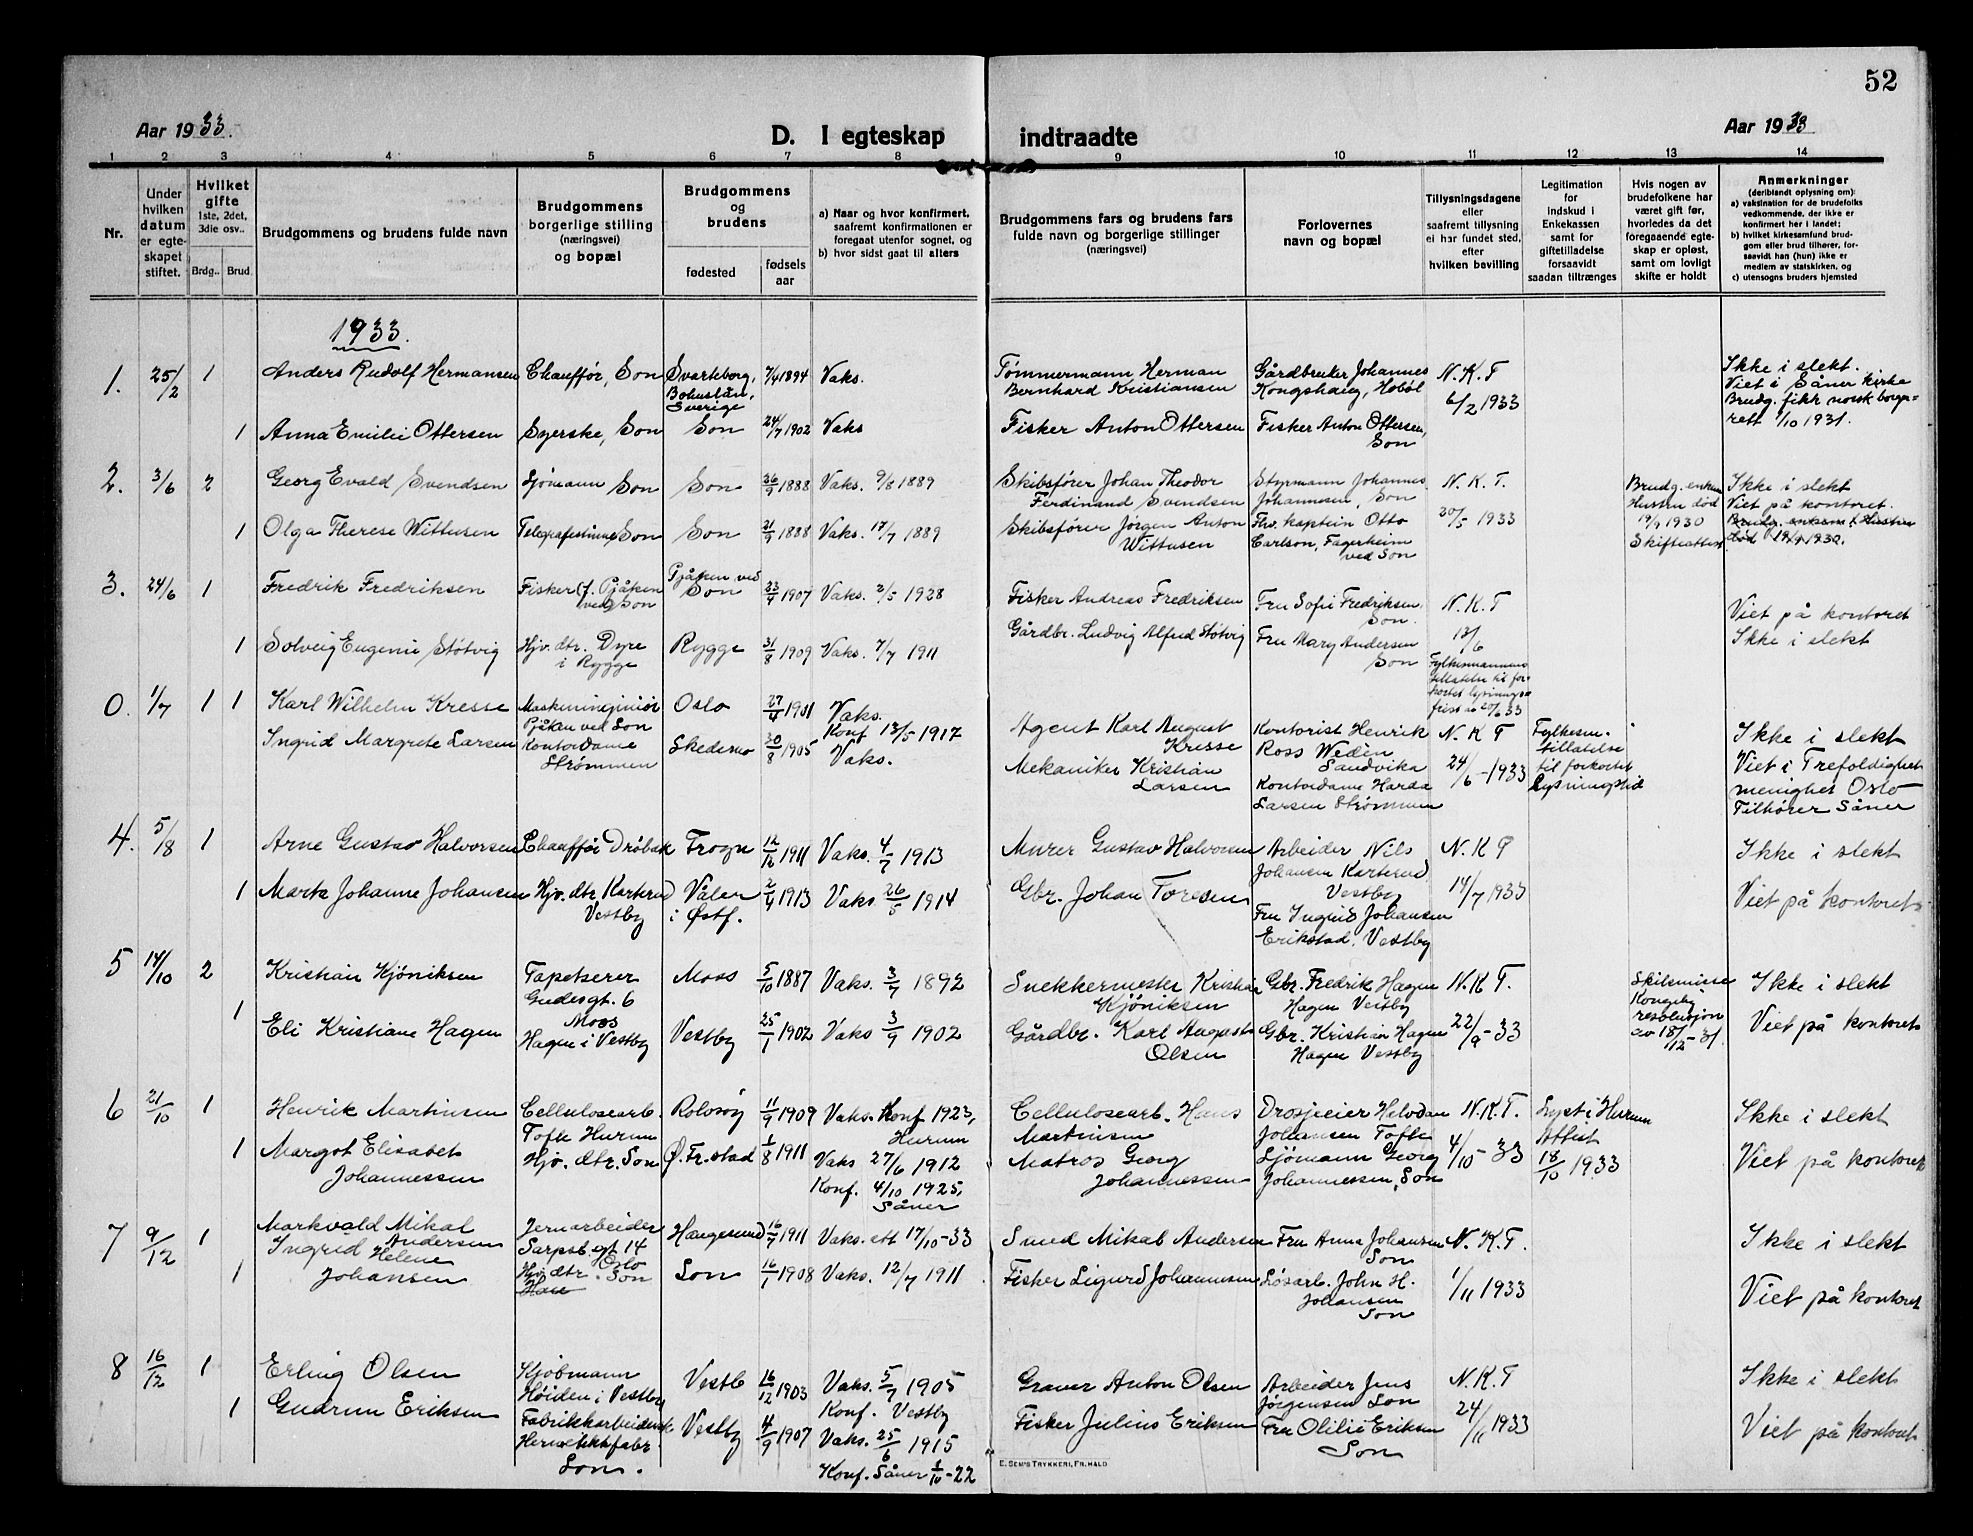 52
Aar 1933.
D. I egteskap indtraadte
Aar 1933
1 2 3 4 5 6 7 8 9 10 11 12 13 14
Nr.
Under hvilken datum er egteskapet stiftet.
Hvilket gifte 1ste, 2det, 3die osv..
Brdg.. Brud.
Brudgommens og brudens fulde navn
Brudgommens borgerlige stilling (næringsvei) og bopæl
Brudgommens og brudens
fødested
fødsels aar
a) Naar og hvor konfirmert, saafremt konfirmationen er foregaat utenfor sognet, og
b) hvor sidst gaat til alters
Brudgommens fars og brudens fars fulde navn og borgerlige stillinger (næringsvei)
Forlovernes navn og bopæl
Tillysningsdagene eller saafremt tillysning ei har fundet sted, efter hvilken bevilling
Legitimation for Indskud i Enkekassen samt for giftetilladelse forsaavidt saadan tiltrænges
Hvis nogen av brudefolkene har været gift før, hvorledes da det foregaaende egteskap er opløst, samt om lovligt skifte er holdt
Anmerkninger (deriblandt oplysning om):
a) vaksination for de brudefolks vedkommende, der ikke er konfirmert her i landet;
b) hvilket kirkesamfund brudgom eller brud tilhører, forsaavidt han (hun) ikke er medlem av statskirken, og
c) utensogns bruders hjemsted
1933.
1. 25/2 1 Anders Rudolf Hermansen Chauffør, Son Svarteborg, Bohuslän, Sverige 7/4 1894 Vaks. Tømmermann Herman Bernhard Kristiansen Gårdbruker Johannes Kongshaug, Hobøl N.K.T 6/2 1933 Ikke i slekt. Viet i Såner kirke Brudg. fikk norsk borgerrett 1/10 1931.
1 Anna Emilie Ottersen Syerske, Son Son 24/7 1902 Vaks Fisker Anton Ottersen Fisker Anton Ottersen, Son
2. 3/6 2 Georg Evald Svendsen Sjømann Son Son 26/9 1888 Vaks. 9/8 1889 Skibsfører Johan Theodor Ferdinand Svendsen Styrmann Johannes Johannesen, Son N.K.T. 20/5 1933 Brudg. enkem. Hustru død 19/9 1930 Skifteattest Ikke i slekt Viet på kontoret.
1 Olga Therese Wittusen Son Son 21/9 1888 Vaks. 17/7 1889 Skibsfører Jørgen Anton Wittusen Fhv. kaptein Otto Carlson, Fagerheim ved Son
3. 24/6 1 Fredrik Fredriksen Fisker Pjåken ved Son Pjåken ved Son 23/4 1907 Vaks. 2/5 1928 Fisker Andreas Fredriksen Fru Sofi Fredriksen Son. N.K.T 13/6 Viet på kontoret Ikke i slekt
1 Solveig Eugenie Støtvig Hjv. dtr. Dyre i Rygge Rygge 31/8 1909 Vaks. 7/7 1911 Gårdbr. Ludvig Alfred Støtvig Fru Mary Andersen Son Fylkesmannens tillatelse til forkortet lysningsfrist av 20/6 33
0. 1/7 1 1 Karl Wilhelm Kresse Maskiningeniør Pjåken ved Son Oslo 27/4 1901 Vaks. Konf 13/5 1917 Agent Karl August Kresse Kontorist Henrik Ross Wedèn Sandvika N.K.T 24/6 - 1933 Fylkesm. tillatelse til forkortet lysningstid Ikke i slekt Viet i Trefoldighet menighet Oslo Tilhører Såner
Ingrid Margrete Larsen Kontordame Strømmen Skedsmo 30/8 1905 Vaks. Mekaniker Kristian Larsen Kontordame Harda Larsen Strømmen
4. 5/8 1 Arne Gustav Halvorsen Chauffør Drøbak Frogn 12/12 1911 Vaks. 4/7 1913 Murer Gustav Halvorsen Arbeider Nils Johansen Karterud Vestby N.K.T 14/7 1933 Ikke i slekt
1 Marta Johanne Johansen Hjv. dtr. Karterud Vestby Våler i Østf. 2/9 1913 Vaks 26/5 1914 Gbr. Johan Toresen Fru Ingrid Johansen Erikstad, Vestby Viet på kontoret
5 14/10 2 Kristian Kjøniksen Tapetserer Gudesgt. 6 Moss Moss 5/10 1887 Vaks. 3/7 1892 Snekkermester Kristian Kjøniksen Gbr. Fredrik Hagen Hagen Vestby N.K.T. 22/9 - 33 Skilsmisse Kongelig resolusjon av 18/12 - 31 Ikke i slekt
1 Eli Kristiane Hagen Hagen i Vestby Vestby 25/1 1902 Vaks 3/9 1902 Gårdbr. Karl August Olsen Gbr. Kristian Hagen Hagen Vestby Viet på kontoret
6 21/10 1 Henrik Martinsen Cellulosearb. Tofte Hurum Rolvsøy 11/9 1909 Vaks. Konf 1923, Hurum Cellulosearb. Hans Martinsen Drosjeeier Halvdan Johansen Tofte N.K.T. 4/10 - 33 Lyst i Hurum Attest 18/10 1933 Ikke i slekt
1 Margot Elisabet Johannessen Hjv. dtr. Son Ø. Fr.stad 1/8 1911 Vaks 27/6 1912 Konf. 4/10 1925, Såner Matros Georg Johannessen Sjømann Georg Johannessen, Son Viet på kontoret
7 9/12 1 Markvald Mikal Andersen Jernarbeider Sarpsb.gt 14 Oslo Haugesund 16/7 1911 Vaks. att 17/10 - 33 Smed Mikal Andersen Fru Anna Johansen Son N.K.T. 1/11 1933 Ikke i slekt
1 Ingrid Helene Johansen Hjv. dtr. Son Son 16/1 1908 Vaks. 12/7 1911. Fisker Sigurd Johannesen Løsarb. John H. Johansen Son Viet på kontoret
8 16/12 1 Erling Olsen Kjøbmann Høiden i Vestby Vestb 16/12 1903 Vaks. 5/7 1905 Konf. Vestby Graver Anton Olsen Arbeider Jens Jørgensen Son N.K.T 24/11 1933 Ikke i slekt
1 Gudrun Eriksen Fabrikkarbeiderske Hermetikkfabr. Son. Vestby 4/9 1907 Vaks. 25/6 1915 Konf. Såner 1/10 - 22 Fisker Julius Eriksen Fru Olilie Eriksen Son Viet på kontoret
E. SEM'S TRYKKERI, FR.HALD